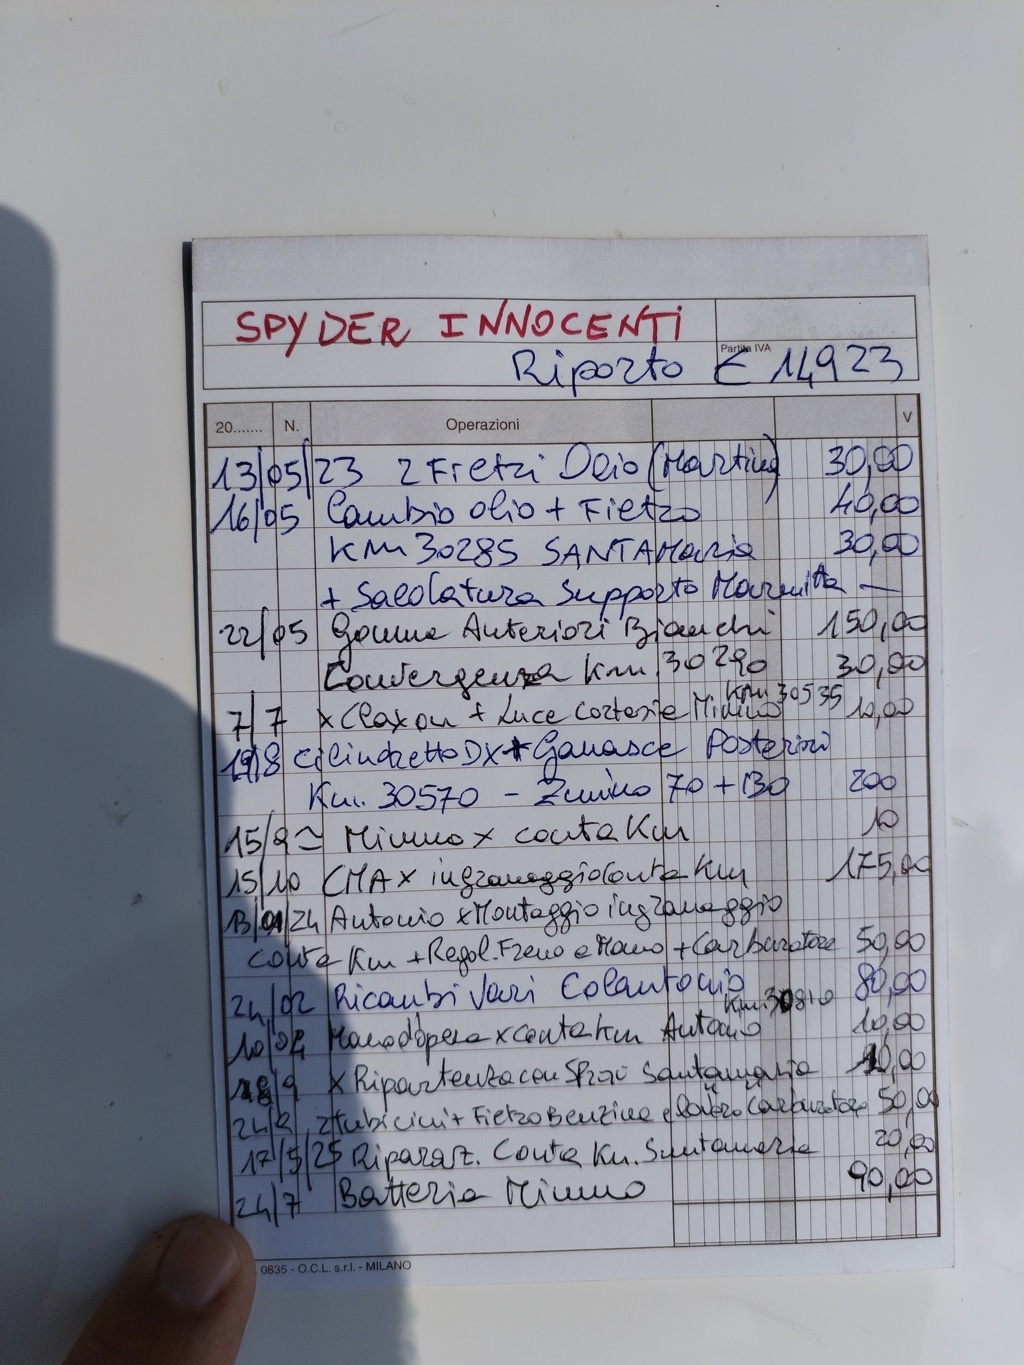 SPYDER INNOCENTI
Partita IVA
Riporto € 14923
20....... N. Operazioni V
13/05/23 2 Filtri Olio (Martino) 30,00
16/05 Cambio olio + Filtro 40,00
Km 30285 SANTAMaria 30,00
+ Saldatura Supporto Marmitta —
22/05 Gomme Anteriori Bianchi 150,00
Convergenza Km. 30290 30,00
Km. 30535
7/7 x Claxon + Luce cortesie Mimmo 10,00
19/8 Cilindretto DX + Ganasce Posteriori
Km. 30570 - Zunino 70 + 130 200
15/9 ~ Mimmo x conta Km 10
15/10 CMA x ingranaggio Conta Km 175,00
13/01/24 Antonio x Montaggio ingranaggio
conta Km + Regol. Freno a Mano + Carburatore 50,00
24/02 Ricambi Vari Colantonio 80,00
Km. 30810
10/04 Manodopera x conta Km Antonio 10,00
x Ripartenza con Santamaria 10,00
2 tubicini + Filtro Benzina e Carburatore 50,00
17/5/25 Riparaz. Conta Km. Santamaria 20,00
24/7 Batteria Mimmo 90,00
0835 - O.C.L. s.r.l. - MILANO